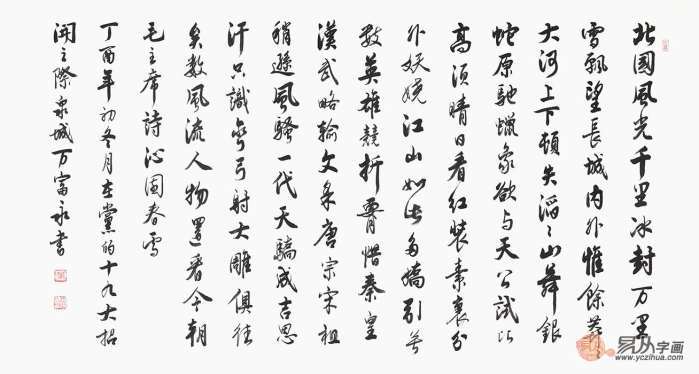 北國風光千里冰封万里
雪飄望長城内外惟餘莽〻
大河上下頓失滔〻山舞銀
蛇原馳蠟象欲与天公試比
高須晴日看紅裝素裹分
外妖娆江山如此多嬌引無
數英雄競折腰惜秦皇
漢武略輸文采唐宗宋祖
稍遜風騷一代天驕成吉思
汗只識彎弓射大雕俱往
矣數風流人物還看今朝
毛主席詩沁园春雪
丁酉年初冬月在黨的十九大招
開之際泉城万富永書
易从字画
www.yczihua.com